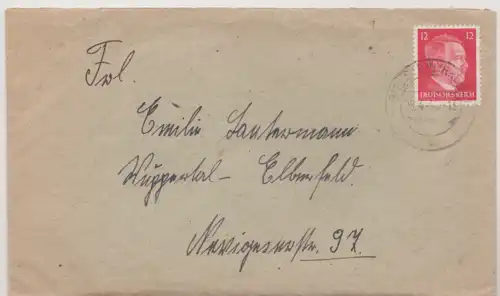 12 12
DEUTSCHES REICH
Frl.
Emilie Santermann
Wuppertal - Elberfeld.
Nevigeserstr. 97.